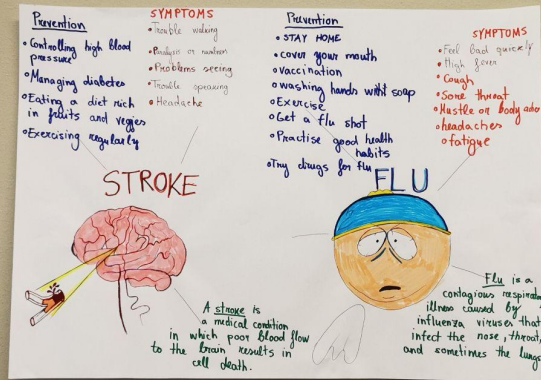 Prevention
• Controlling high blood
pressure
• Managing diabetes
• Eating a diet rich
in fruits and veggies
• Exercising regularly
SYMPTOMS
• Trouble walking
• Paralysis or numbness
• Problems seeing
• Trouble speaking
• Headache
STROKE
A stroke is
a medical condition
in which poor blood flow
to the brain results in
cell death.
Prevention
• STAY HOME
• cover your mouth
• vaccination
• washing hands with soap
• Exercise
• Get a flu shot
• Practise good health
habits
• Try drugs for flu
SYMPTOMS
• Feel bad quickly
• High fever
• Cough
• Sore throat
• Mustle or body
• headaches
• fatigue
FLU
Flu is a
contagious respirato
illness caused by
influenza viruses that
infect the nose, throat,
and sometimes the lungs